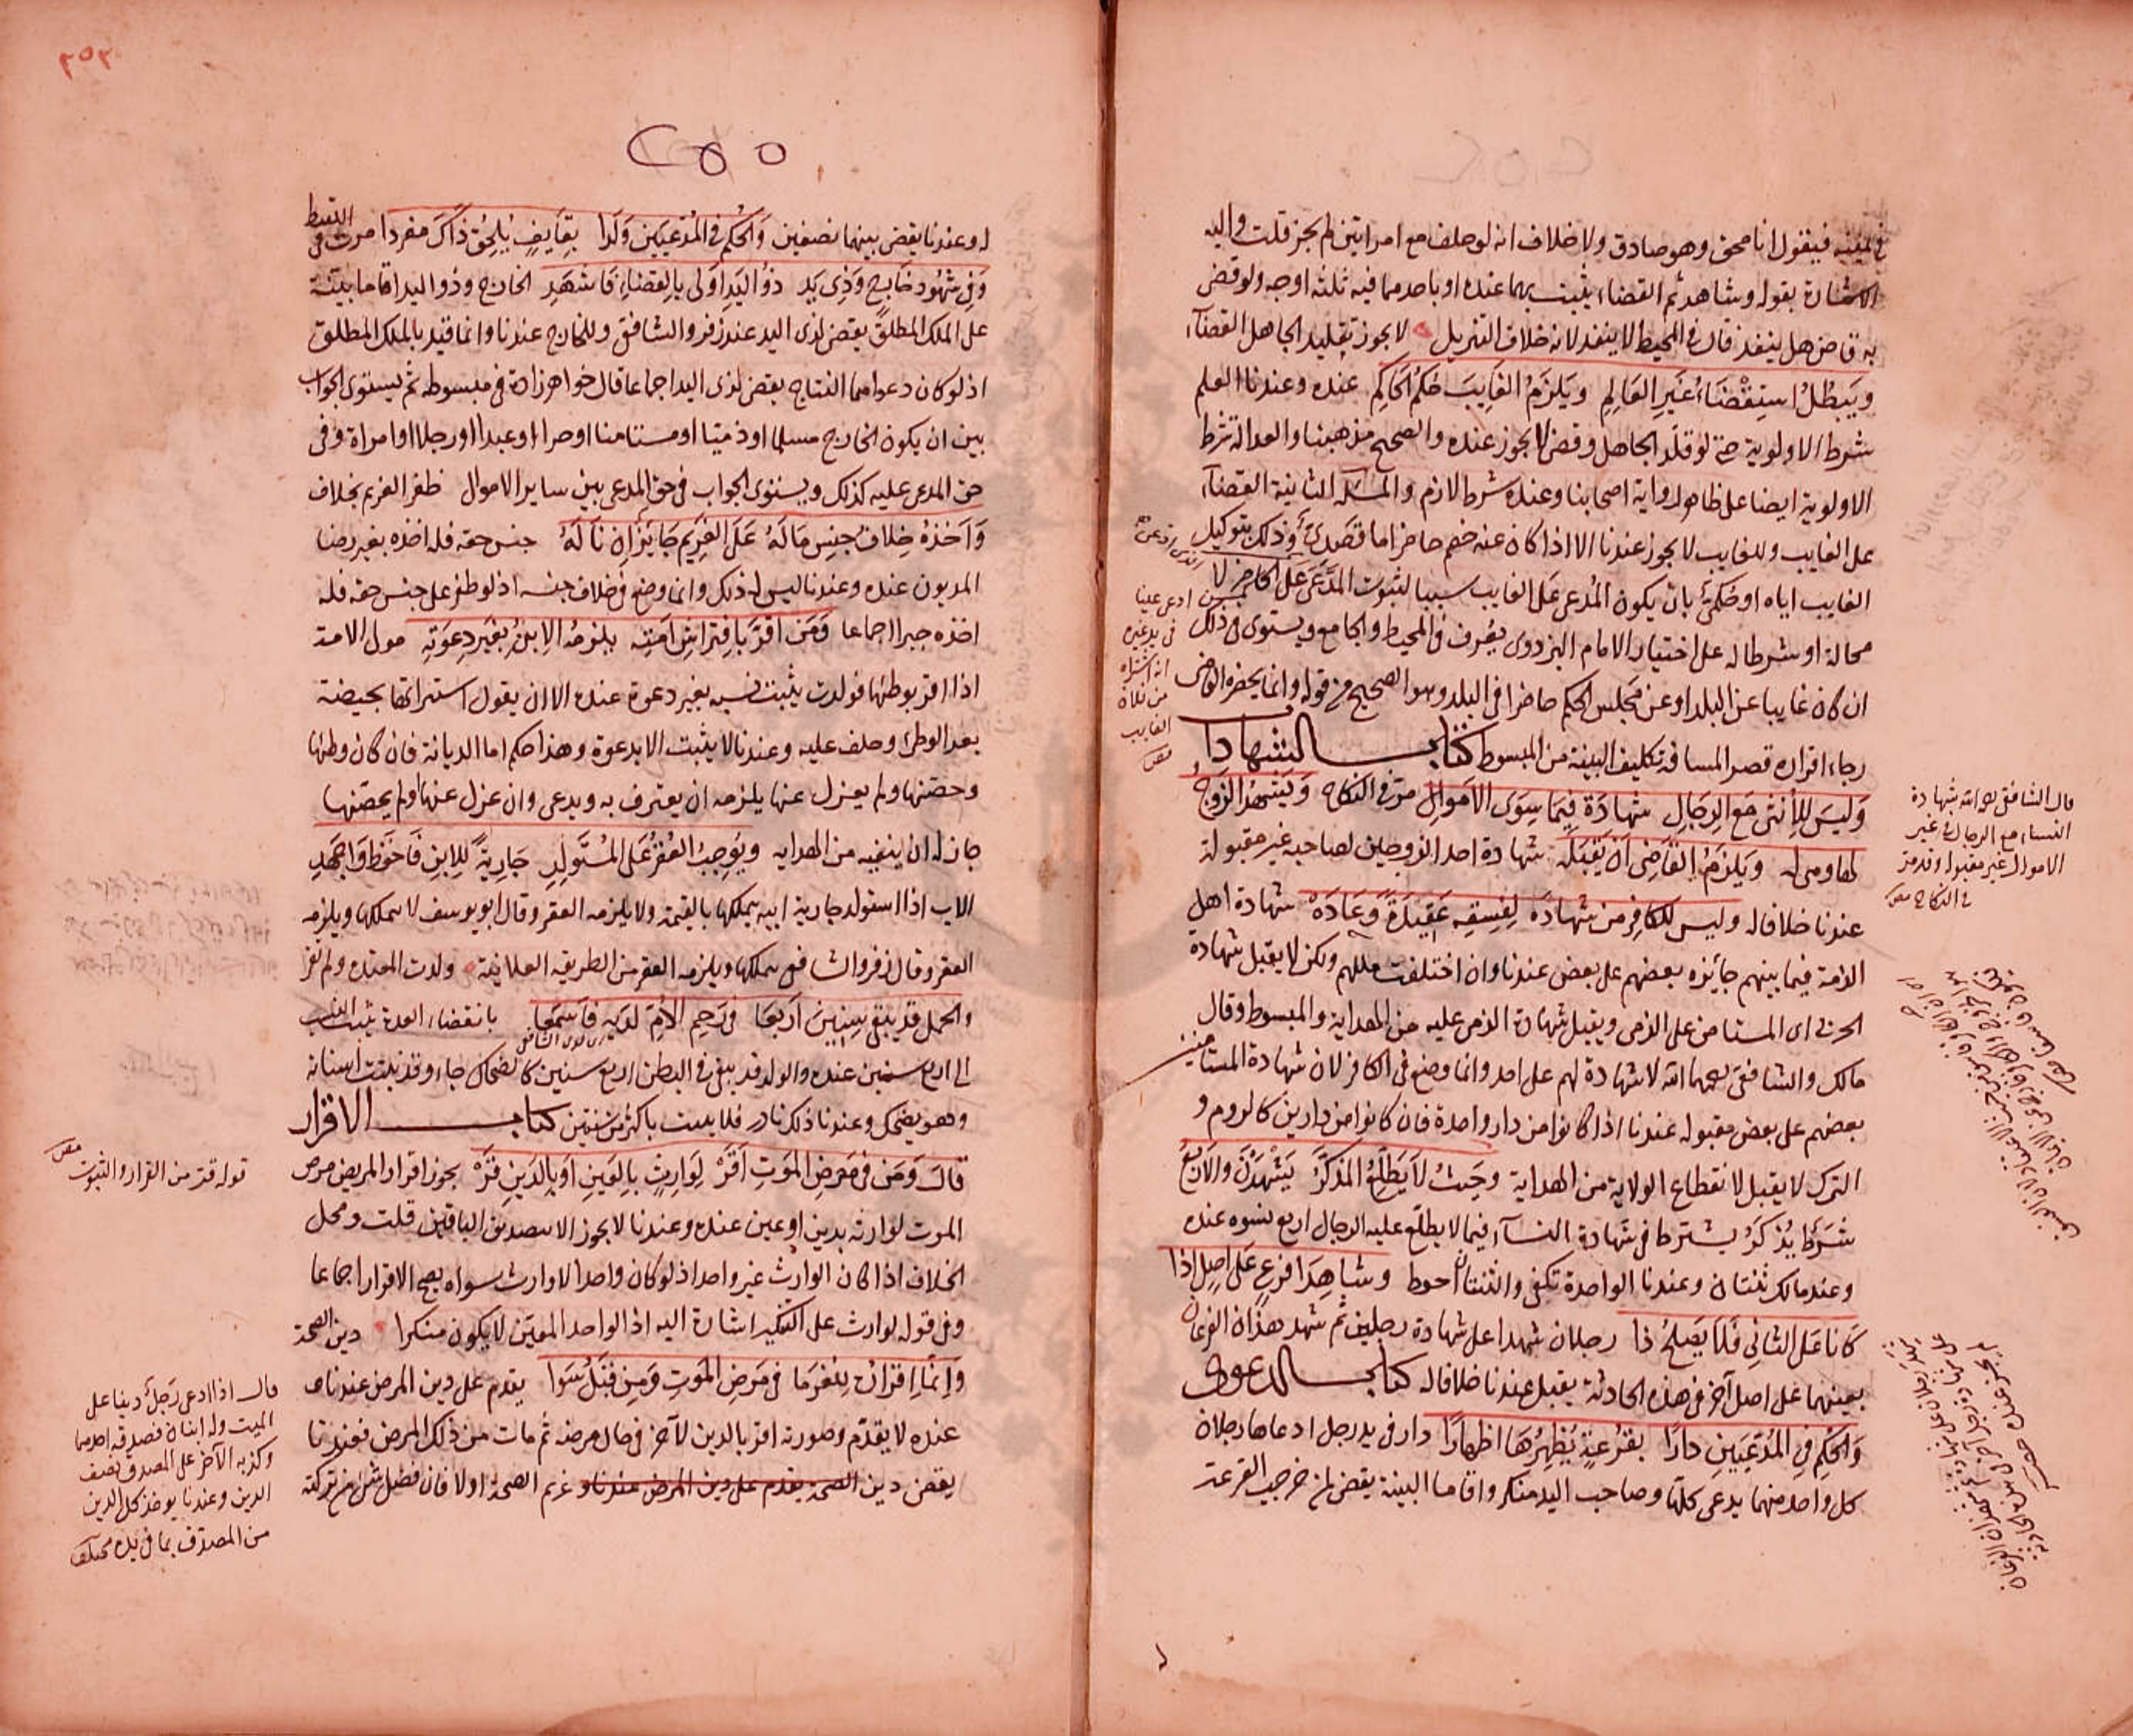 في يمينه فيقول انا محق وهو صادق ولا خلاف انه لو حلف مع امراتين لم يجز قلت واليه
الاشارة بقوله وشاهد ثم القضاء يثبت بهما عنده او باحدهما فيه ثلثة اوجه ولو قضى
به قاض هل ينفذ قال في المحيط لا ينفذ لانه خلاف التنزيل لا يجوز تقليد الجاهل القضاء
ويبطل استقضاء غير العالم ويلزم الغايب حكم الحاكم عنده وعندنا العلم
شرط الاولوية حتى لو قلد الجاهل وقضى لا يجوز عنده والصحيح مذهبنا والعدالة شرط
الاولوية ايضا على ظاهر رواية اصحابنا وعنده شرط لازم والمسئلة الثانية القضاء
على الغايب وللغايب لا يجوز عندنا الا اذا كان عنه خصم حاضر اما قصدي وذلك بتوكيل
الغايب اياه او حكمي بان يكون المدعى على الغايب سببا لثبوت المدعى على الحاضر لا
محالة او شرطا له على اختيار الامام البزدوي يعرف في المحيط والجامع ويستوي في ذلك
ان كان غايبا عن البلد او عن مجلس الحكم حاضرا في البلد وهو الصحيح من قوله وانما يحضره القاضي
رجاء اقراره قصر المسافة تكليف البينة من المبسوط كتاب الشهادات
وليس للانثى مع الرجال شهادة فيما سوى الاموال مر في النكاح ويشهد الزوج
لها وهي له ويلزم القاضي ان يقبله شهادة احد الزوجين لصاحبه غير مقبولة
عندنا خلافا له وليس للكافر من شهادة لفسقه عقيدة وعادة شهادة اهل
الذمة فيما بينهم جائزة بعضهم على بعض عندنا وان اختلفت مللهم ولكن لا يقبل شهادة
الحربي اى المستامن على الذمي ويقبل شهادة الذمي عليه من الهداية والمبسوط وقال
مالك والشافعي رحمهما الله لا شهادة لهم على احد وانما وضع في الكافر لان شهادة المستامنين
بعضهم على بعض مقبولة عندنا اذا كانوا من دار واحدة فان كانوا من دارين كالروم و
الترك لا يقبل لانقطاع الولاية من الهداية وحيث لا يطلع المذكر يشهدن والاربع
شرط يذكر يشترط في شهادة النساء فيما لا يطلع عليه الرجال اربع نسوة عنده
وعند مالك ثنتان وعندنا الواحدة تكفي والثنتان احوط وشاهدا فرع على اصل اذا
كانا على الثاني فلا يصلح ذا رجلان شهدا على شهادة رجلين ثم شهد هذان الفرعان
بعينهما على اصل آخر في هذه الحادثة يقبل عندنا خلافا له كتاب الدعوى
والحكم في المدعيين دارا بقرعة يظهرها اظهارا دار في يد رجل ادعاها رجلان
كل واحد منهما يدعي كلها وصاحب اليد منكر واقاما البينة يقضى لمن خرجت القرعة
ادعى عينا
في يد غيره
انه اشتراه
من فلان
الغايب
قال الشافعي رحمه الله شهادة
النساء مع الرجال في غير
الاموال غير مقبولة وقد مر
في النكاح
٢٥٢
له وعندنا يقضى بينهما نصفين والحكم في المدعيين ولدا بقايف يلحق ذاك مفردا مرت في اللقيط
وفي شهود خارج وذي يد ذو اليد اولى بالقضاء فاشهد الخارج وذو اليد اقاما بينة
على الملك المطلق يقضى لذي اليد عند زفر والشافعي وللخارج عندنا وانما قيد بالملك المطلق
اذ لو كان دعواهما النتاج يقضى لذي اليد اجماعا قال خواهرزادة في مبسوطه ثم يستوي الجواب
بين ان يكون الخارج مسلما او ذميا او مستامنا او حرا او عبدا او رجلا او امراة وفي
حق المدعى عليه كذلك ويستوي الجواب في حق المدعي بين ساير الاموال ظفر الغريم بخلاف
واخذه خلاف جنس ماله على الغريم جايز ان ناله جنس حقه فله اخذه بغير رضا
المديون عنده وعندنا ليس له ذلك وانما وضع في خلاف جنسه اذ لو ظفر على جنس حقه فله
اخذه جبرا اجماعا ومن اقر بافتراش امته يلزمه الابن بغير دعوته مولى الامة
اذا اقر بوطئها فولدت يثبت نسبه بغير دعوة عنده الا ان يقول استبراتها بحيضة
بعد الوطئ وحلف عليه وعندنا لا يثبت الا بدعوة وهذا حكم اما الديانة فان كان وطئها
وحصنها ولم يعزل عنها يلزمه ان يعترف به ويدعي وان عزل عنها ولم يحصنها
جاز له ان ينفيه من الهدايه ويوجب العقر على المستولد جارية للابن فاحفظ واجهد
الاب اذا استولد جارية ابنه يملكها بالقيمة ولا يلزمه العقر وقال ابو يوسف لا يملكها ويلزمه
العقر وقال زفر والشافعي يملكها ويلزمه العقر من الطريقه العلائية ولدت المعتدة ولم تقر
والحمل قد يبقى سنين اربعا في رحم الام لديه فاسمعا بانقضاء العدة يثبت النسب
الى اربع سنين عنده والولد قد يبقى في البطن اربع سنين كالضحاك جاء وقد نبتت اسنانه
وهو يضحك وعندنا ذلك نادر فلا يثبت باكثر من سنتين كتاب الاقرار
قال ومن في مرض الموت اقر لوارث بالعين او بالدين قر يجوز اقرار المريض مرض
الموت لوارثه بدين او عين عنده وعندنا لا يجوز الا بتصديق الباقين قلت ومحل
الخلاف اذا كان الوارث غير واحد اذ لو كان واحدا لا وارث سواه يصح الاقرار اجماعا
وفي قوله لوارث على التنكير اشارة اليه اذ الواحد المعين لا يكون منكرا دين الصحة
وانما اقران للغرما في مرض الموت ومن قبل سوا يقدم على دين المرض عندنا و
عنده لا يقدم وصورته اقر بالدين لآخر في حال مرضه ثم مات من ذلك المرض فعندنا
يقضى دين الصحة يقدم على دين المرض عندنا و غريم الصحة اولا فان فضل شئ من تركته
قوله قر من القرار والثبوت
قال اذا ادعى رجل دينا على
الميت وله ابنان فصدقه احدهما
وكذبه الآخر على المصدق نصف
الدين وعندنا يوخذ كل الدين
من المصدق بما في يده